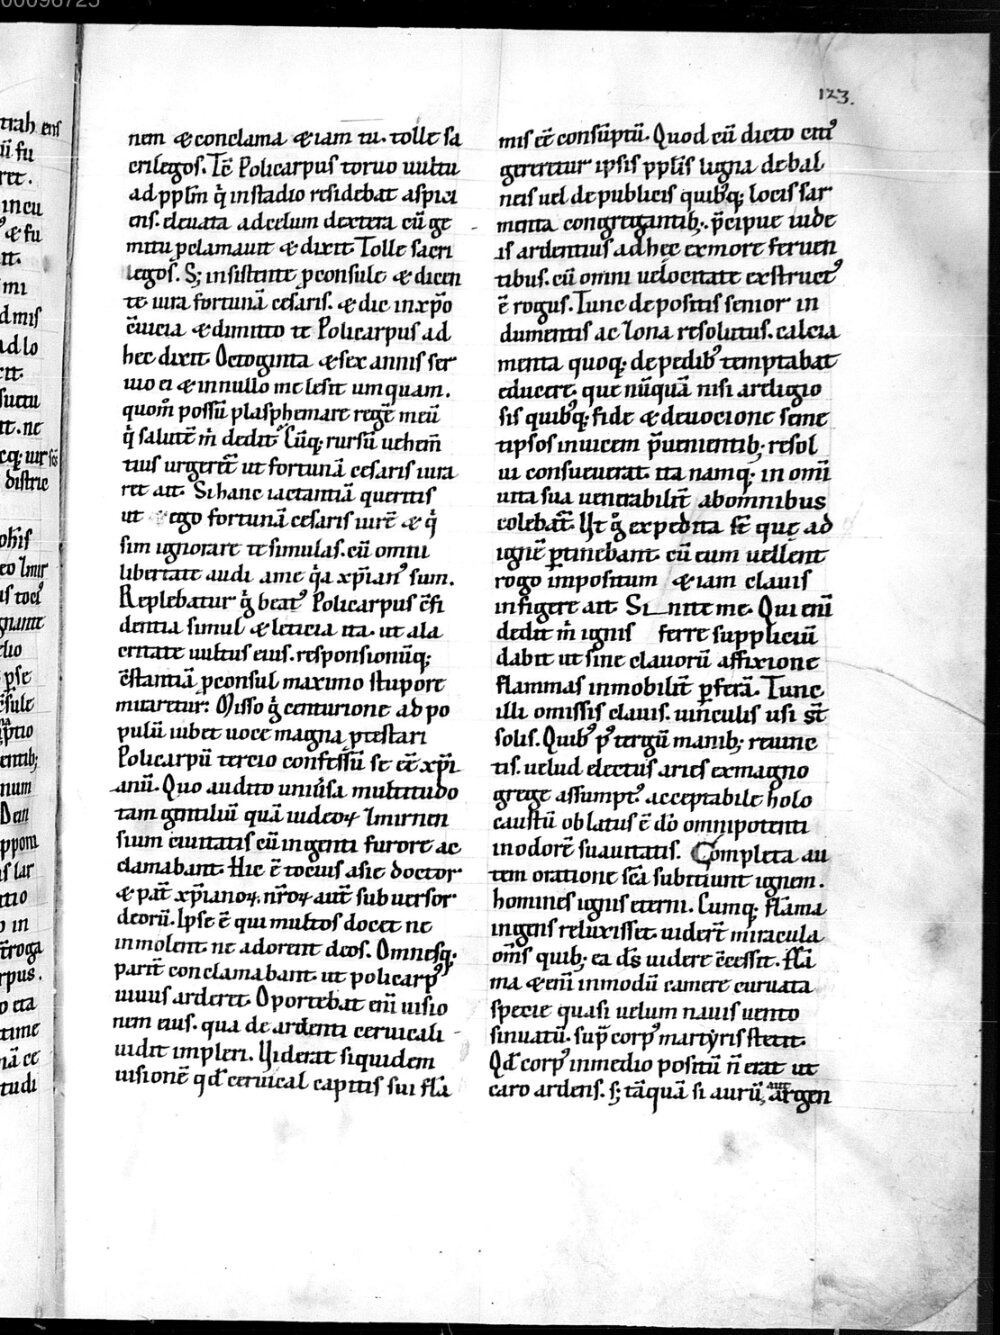 00098725
123.
trah ens
ũ fu
ret.
incu
& fu
it.
mi
dmis
ad lo
ctt.
suctu
tt. ne
cq; uir
distric
nem & conclama & iam tu. tolle sa
crilegos. Tc̄ Policarpus toruo uultu
ad pplm̄ q̇ instadio residebat aspici
ens. eleuata adcelum dextera cū ge
mitu ꝓclamauit & dixit Tolle sacri
legos. S; insistente ꝓconsule & dicen
te iura fortunā cesaris. & dic inxp̄o
c̄uicia & dimitto te Policarpus ad
hec dixit Octoginta & sex annis ser
uio ei & innullo me lesit umquam.
quom̄ possū plasphemare regē meū
q̇ salutē m̄ dedit Cūq; rursū uehem̄
tius urgeret̄ ut fortunā cesaris iura
ret ait. Si hanc iactantiā queritis
ut ego fortunā cesaris iurē & q̇
sim ignorare te simulas. cū omni
libertate audi a me q̇a xp̄ianꝰ sum.
Replebatur g̊ beatꝰ Policarpus c̄fi
dentia simul & leticia ita. ut ala
critate uultus eius. responsionūq;
c̄stantiā ꝓconsul maximo stupore
miraretur: Misso g̊ centurione ad po
pulū iubet uoce magna ptestari
Policarpū tercio confessū se eē xp̄i
anū. Quo audito uniũsa multitudo
tam gentiliū quā iudeoꝝ Smirnen
sium ciuitatis cū ingenti furore ac
clamabant. Hic ē tocius asie doctor
& pat̄ xp̄ianoꝝ, nr̄oꝝ aut̄ subuersor
deorū. Ipse ē qui multos docet ne
inmolent ne adorent deos. Omnesq;
parit̄ conclamabant. ut policarpꝰ
uiuus arderet. Oportebat eni̅ uisio
nem eius. qua de ardenti ceruicali
uidit impleri. Uiderat siquidem
uisionē qd̄ ceruical capitis sui flā
mis eē consūptū. Quod cū dicto citiꝰ
gereretur ipsis pplis̄ ligna de bal
neis uel de publicis quibꝰq; locis sar
menta congregantib;. p̄cipue iude
is ardentius ad hec ex more feruen
tibus. cū omni uelocitate exstructꝰ
ē rogus. Tunc depositis senior in
dumentis ac zona resolutus. calcia
menta quoq; de pedibꝰ temptabat
educere. que nūquā nisi areligio
sis quibꝰq; fide & deuocione seme
tipsos inuicem p̄uenientib; resol
ui consueuerat. ita namq; in omi̅
uita sua uenerabilit̄ ab omnibus
colebat̄. Ut g̊ expedita st̄ que ad
ignē ꝑtinebant cū eum uellent
rogo impositum & iam clauis
infigere ait Sinite me. Qui eni̅
dedit m̄ ignis ferre suppliciū
dabit ut sine clauorū affixione
flammas inmobilit̄ ꝑferā. Tunc
illi omissis clauis. uinculis usi st̄
solis. Quibꝰ p̱ tergū manib; reuinc
tis. uelud electus aries ex magno
grege assumptꝰ acceptabile holo
caustū oblatus ē do̅ omnipotenti
in odorē suauitatis. Completa au
tem oratione sc̄a subiciunt ignem.
homines ignis eterni. Cumq; flāma
ingens reluxisset. uidert̄ miracula
om̄s quib; ea ds̄ uidere c̄cessit. flā
ma & eni̅ inmodū camere curuata
specie quasi uelum nauis uento
sinuatū. sup̄ corpꝰ martyris stetit.
Qd̄ corpꝰ inmedio positū n̄ erat ut
caro ardens. s; tāquā si aurū, aut argen